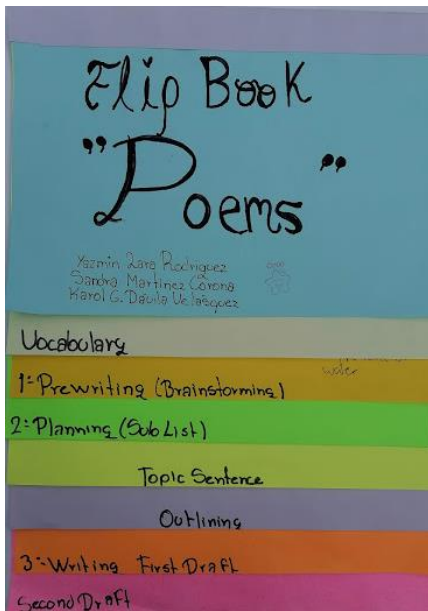 Flip Book
"Poems"
Yazmin Lara Rodriguez
Sandra Martinez Corona
Karol G. Davila Velasquez
Vocabulary
water
1:-Prewriting (Brainstorming)
2:-Planning (Sub List)
Topic Sentence
Outlining
3:-Writing First Draft
Second Draft